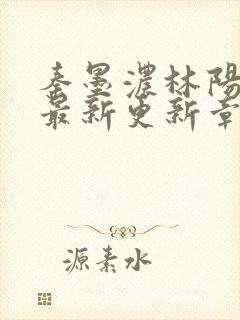 秦墨濃林陽
最新更新章
源素水